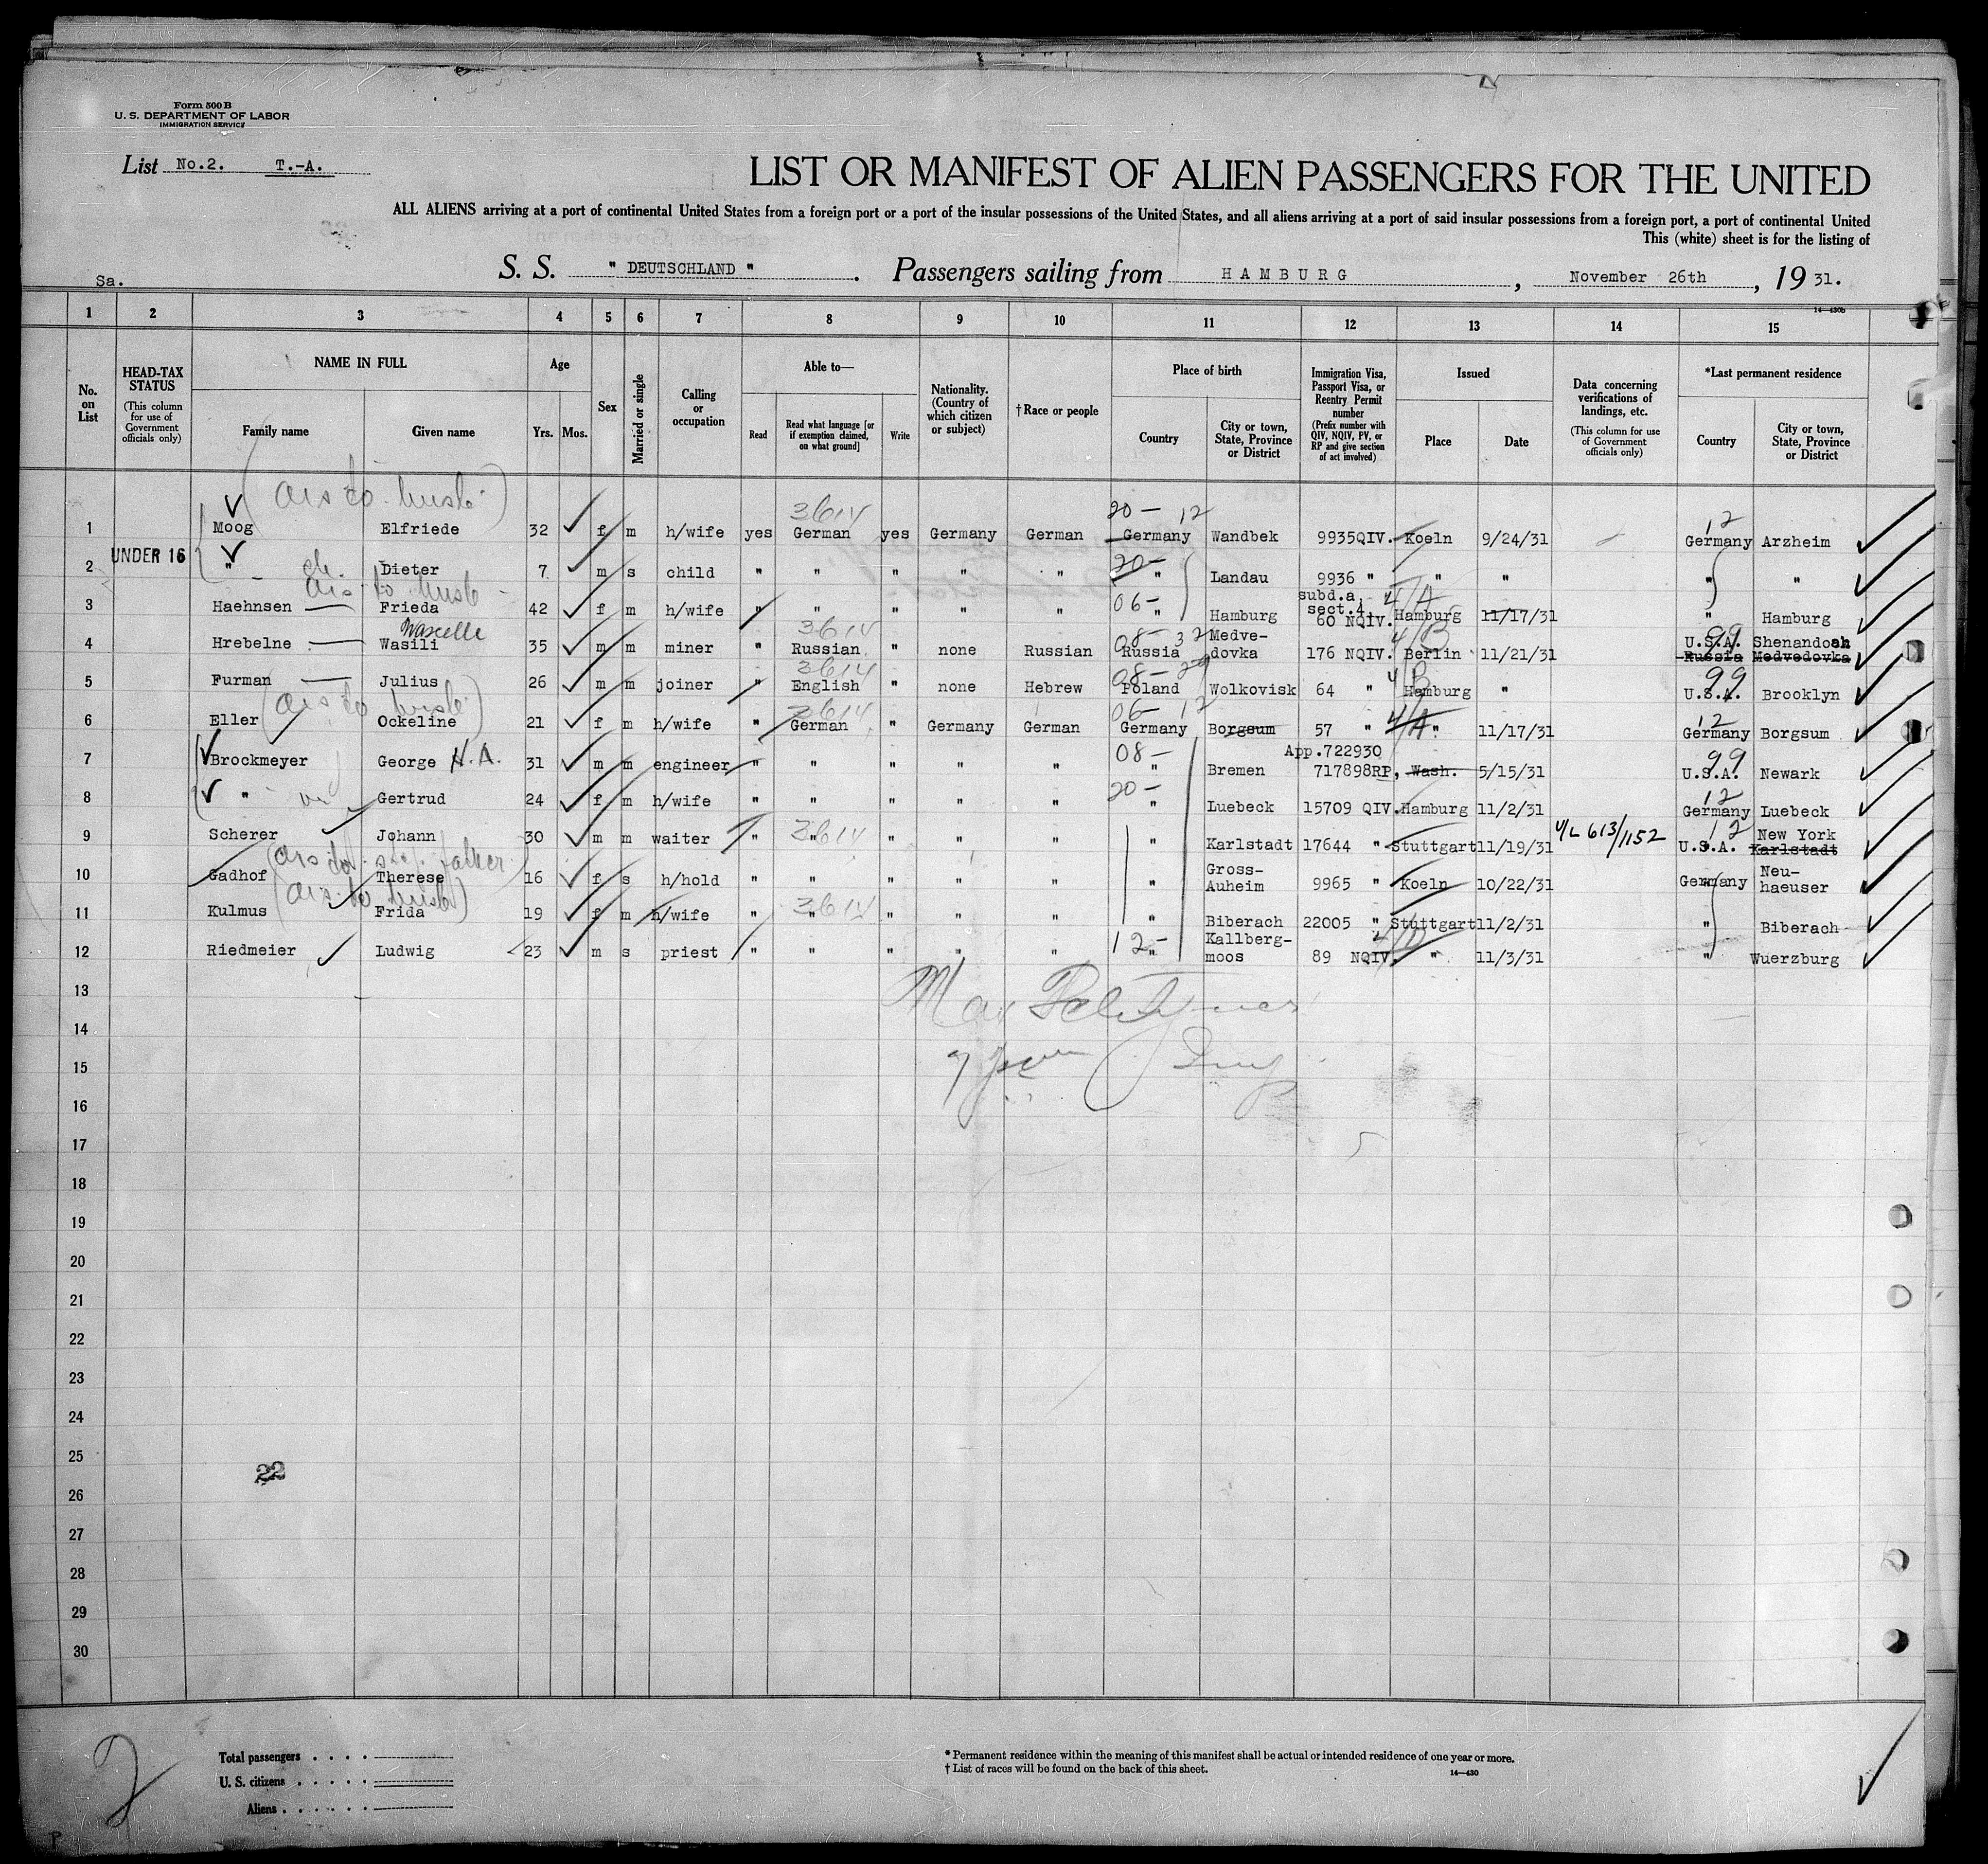 Form 500 B
U. S. DEPARTMENT OF LABOR
IMMIGRATION SERVICE
List No.2. T.-A.
LIST OR MANIFEST OF ALIEN PASSENGERS FOR THE UNITED
ALL ALIENS arriving at a port of continental United States from a foreign port or a port of the insular possessions of the United States, and all aliens arriving at a port of said insular possessions from a foreign port, a port of continental United
This (white) sheet is for the listing of
Sa. S. S. " DEUTSCHLAND " . Passengers sailing from HAMBURG , November 26th , 19 31.
14—430b
1 2 3 4 5 6 7 8 9 10 11 12 13 14 15
No. on List
HEAD-TAX STATUS (This column for use of Government officials only)
NAME IN FULL
Family name Given name
Age
Yrs. Mos.
Sex
Married or single
Calling or occupation
Able to—
Read
Read what language [or if exemption claimed, on what ground]
Write
Nationality. (Country of which citizen or subject)
† Race or people
Place of birth
Country
City or town, State, Province or District
Immigration Visa, Passport Visa, or Reentry Permit number (Prefix number with QIV, NQIV, PV, or RP and give section of act involved)
Issued
Place Date
Data concerning verifications of landings, etc. (This column for use of Government officials only)
*Last permanent residence
Country
City or town, State, Province or District
(ars to husb.)
3614 20 — 12 12
1 Moog Elfriede 32 f m h/wife yes German yes Germany German Germany Wandbek 9935QIV. Koeln 9/24/31 Germany Arzheim
UNDER 16
20—
2 " ch. Dieter 7 m s child " " " " " " Landau 9936 " " " " "
ars to husb
06— subd.a, sect.4, 4/A
3 Haehnsen Frieda 42 f m h/wife " " " " " " Hamburg 60 NQIV. Hamburg 11/17/31 " Hamburg
3614 08— 32 4/B 99
4 Hrebelne Wasili 35 m m miner " Russian " none Russian Russia Medve-dovka 176 NQIV. Berlin 11/21/31 U.S.A. Shenandoah
Russia Medvedovka
3614 08— 29 4/B 99
5 Furman Julius 26 m m joiner " English " none Hebrew Poland Wolkovisk 64 " Hamburg " U.S.A. Brooklyn
(ars to husb.)
3614 06— 12 4/A 12
6 Eller Ockeline 21 f m h/wife " German " Germany German Germany Borgsum 57 " " 11/17/31 Germany Borgsum
08— App.722930 99
7 Brockmeyer George H.A. 31 m m engineer " " " " " " Bremen 717898RP, Wash. 5/15/31 U.S.A. Newark
20— 12
8 " Gertrud 24 f m h/wife " " " " " " Luebeck 15709 QIV. Hamburg 11/2/31 Germany Luebeck
3614 V/L 613/1152 12 New York
9 Scherer Johann 30 m m waiter " " " " " " Karlstadt 17644 " Stuttgart 11/19/31 U.S.A. Karlstadt
(ars to step father)
10 Gadhof Therese 16 f s h/hold " " " " " " Gross-Auheim 9965 " Koeln 10/22/31 Germany Neu-haeuser
(ars to husb)
3614
11 Kulmus Frida 19 f m h/wife " " " " " " Biberach 22005 " Stuttgart 11/2/31 " Biberach
12— 4/D
12 Riedmeier Ludwig 23 m s priest " " " " " " Kallberg-moos 89 NQIV. " 11/3/31 " Wuerzburg
13
14
15
16
17
18
19
20
21
22
23
24
25
22
26
27
28
29
30
2
Total passengers
U. S. citizens
Aliens
* Permanent residence within the meaning of this manifest shall be actual or intended residence of one year or more.
† List of races will be found on the back of this sheet.
14—430
P